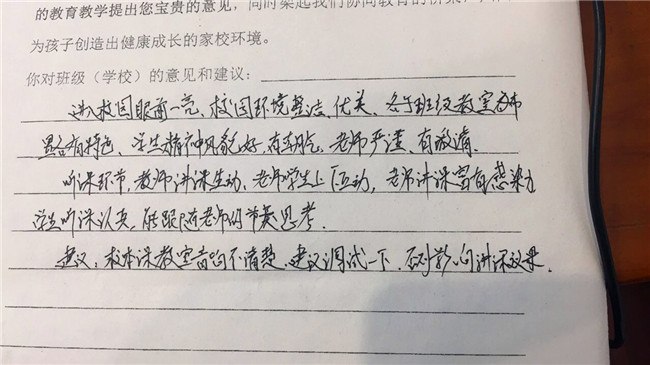 的教育教学提出您宝贵的意见，同时架起我们协同教育的桥梁，
为孩子创造出健康成长的家校环境。
你对班级（学校）的意见和建议：
进入校园眼前一亮、校园环境整洁、优美、各个班级教室布
置各有特色、学生精神风貌好、有朝气、老师严谨、有激情。
听课环节，教师讲课生动，老师学生上互动，老师讲课富有感染力
学生听课认真，能跟随老师的节奏思考。
建议：校本课教室音响不清楚、建议调试一下、否则影响讲课效果。